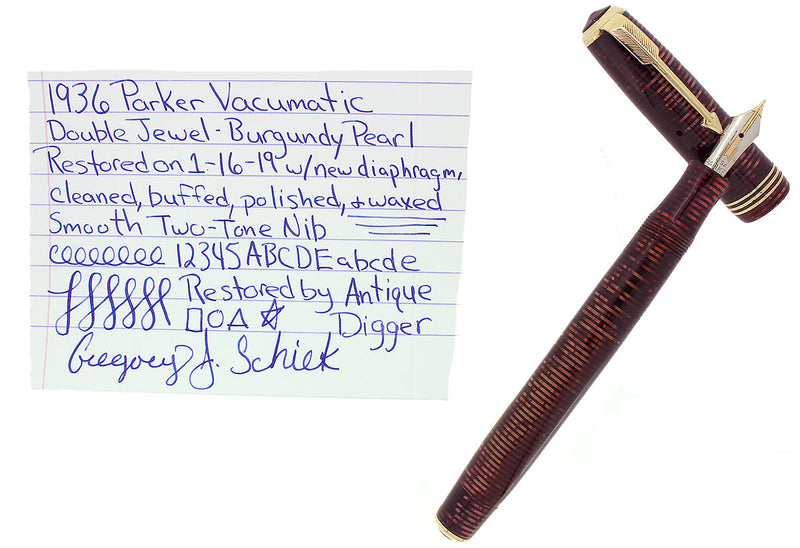 1936 Parker Vacumatic
Double Jewel - Burgundy Pearl
Restored on 1-16-19 w/new diaphragm,
cleaned, buffed, polished, & waxed
Smooth Two-Tone Nib
eeeeeeee 12345 ABCDE abcde
Restored by Antique
Digger
Gregory J. Schiek